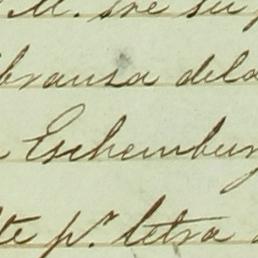 M. sre su
branza dela
Eschembur
te p.r letra